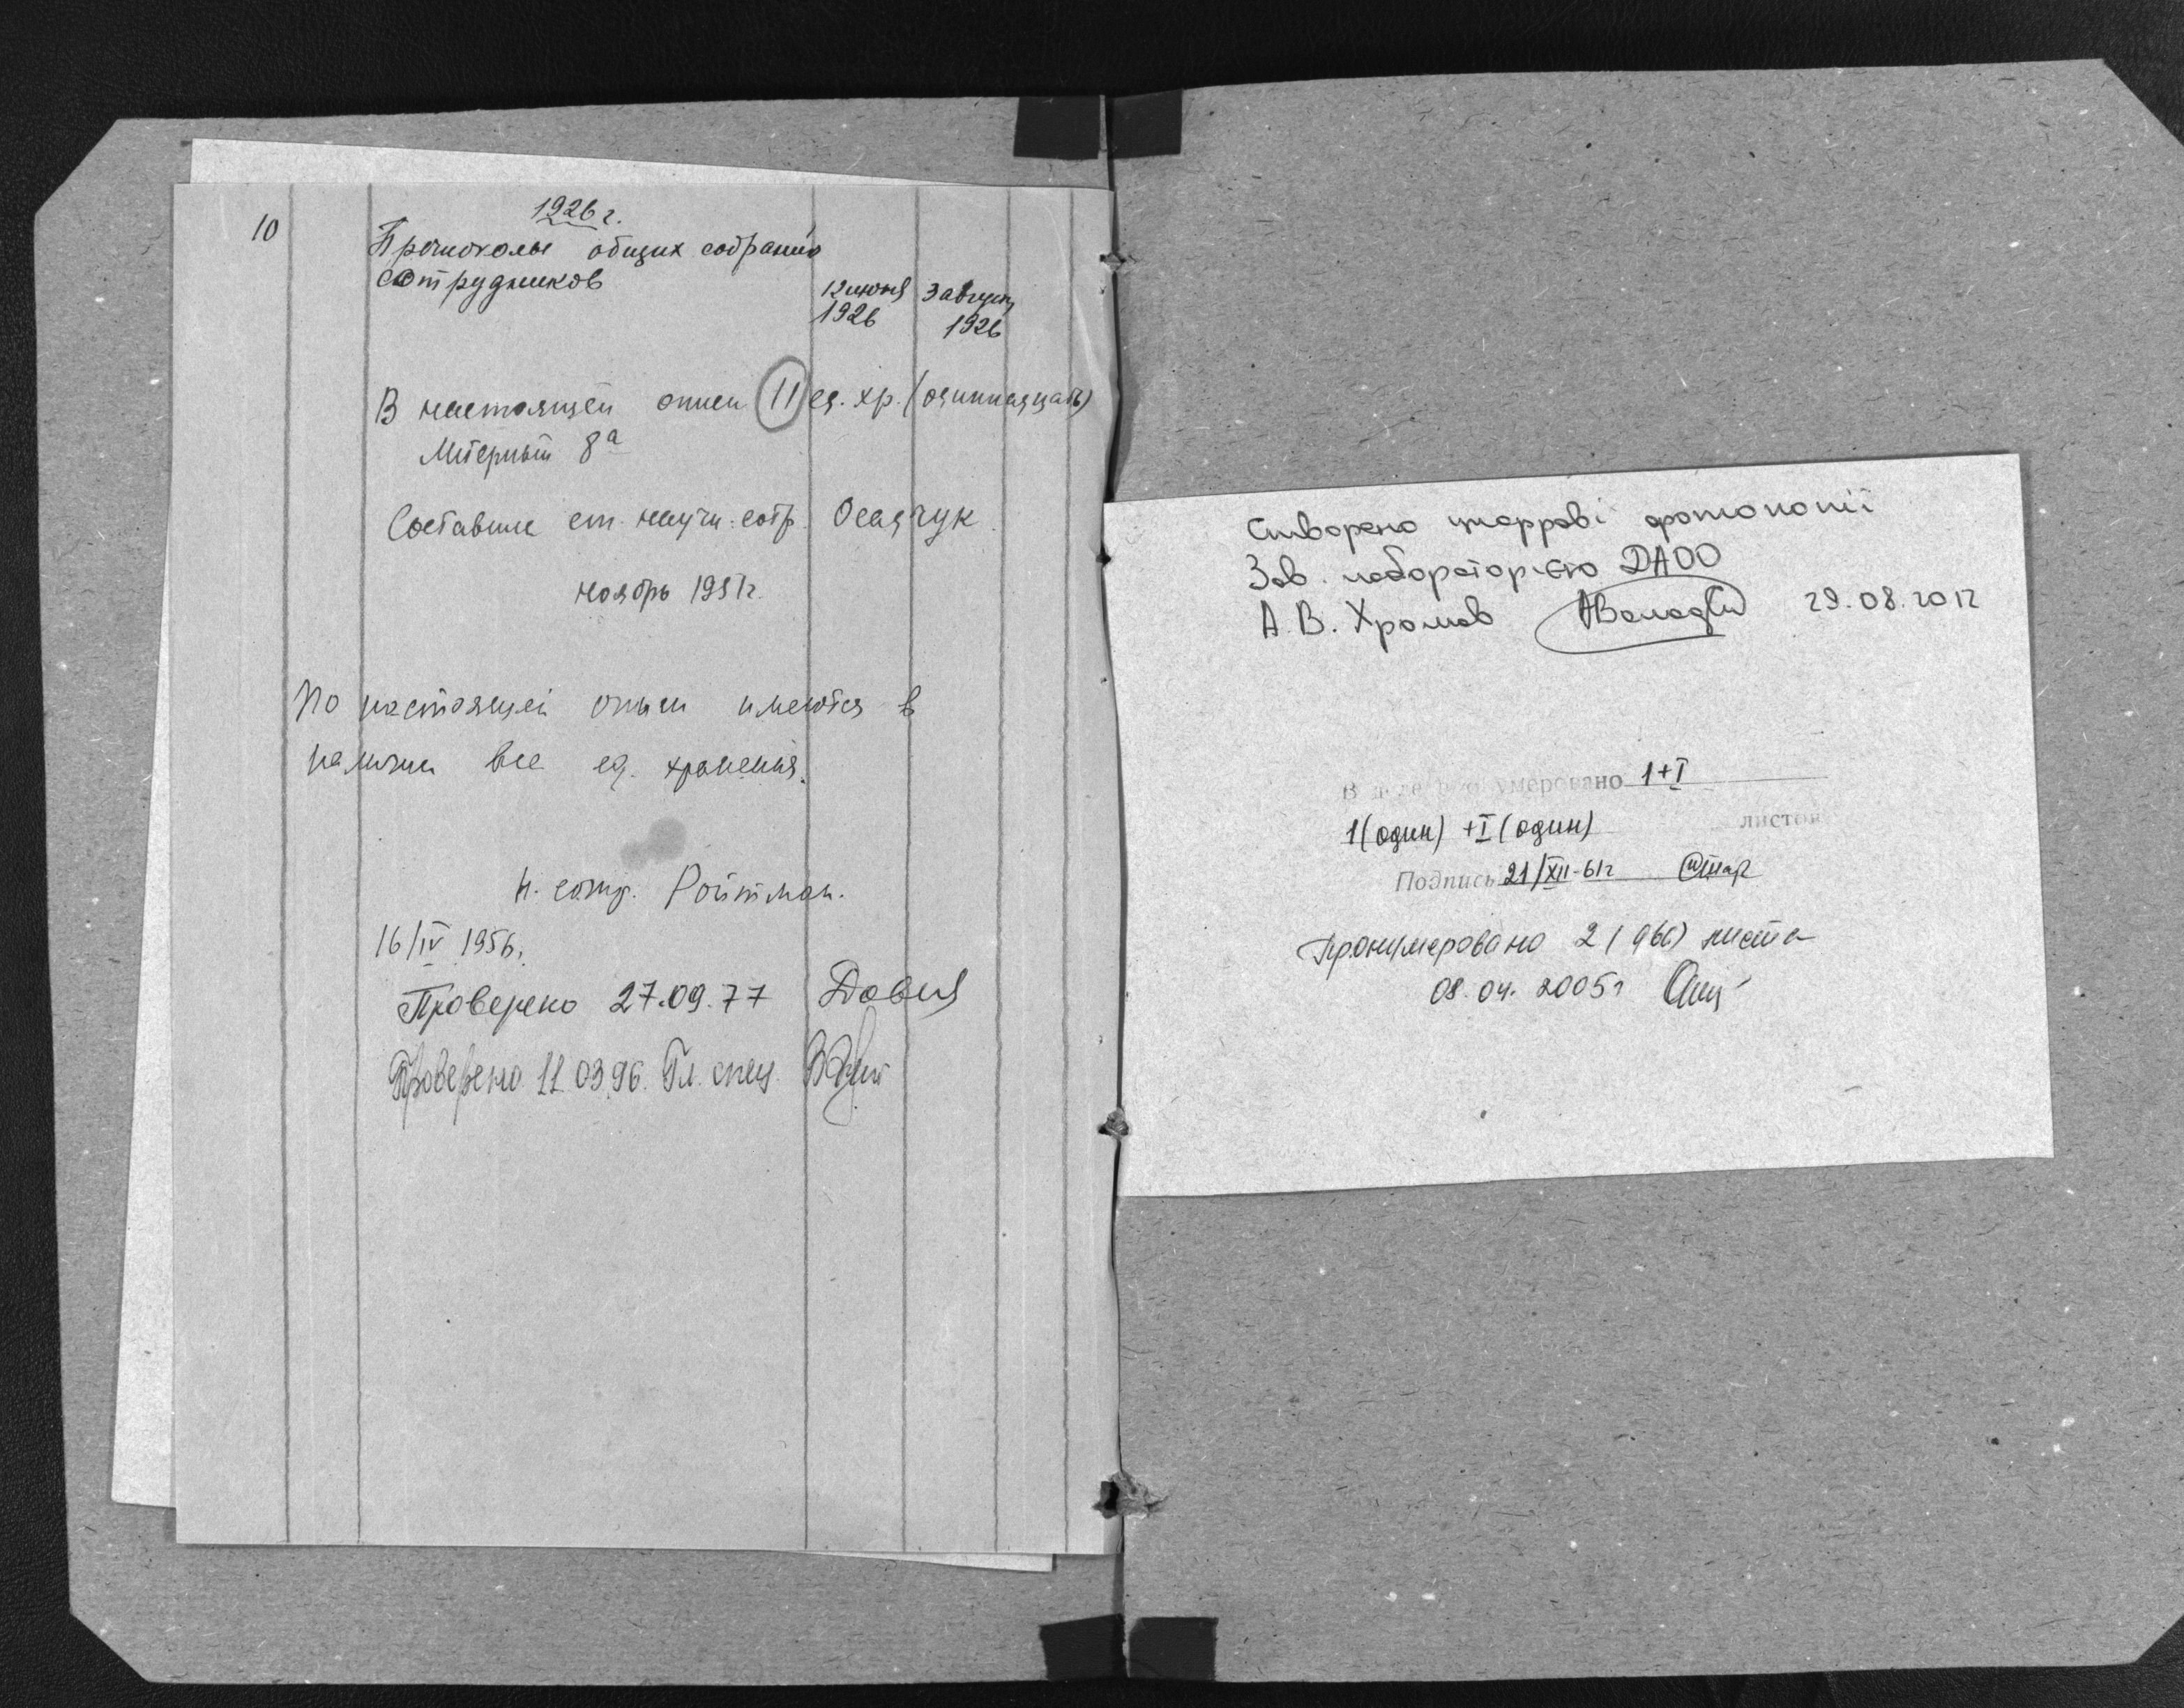 1926 г.
10
Протоколы общих собраний
сотрудников
12 июня 3 августа
1926 1926
В настоящей описи 11 ед. хр. (одиннадцать)
Литерный 8а
Составил ст. научн. сотр. Осадчук
ноябрь 1951г.
По настоящей описи имеются в
наличии все ед. хранения.
Н. сотр. Ройтман.
16/IV 1956.
Проверено 27.09.77
Проверено 11.03.96. Гл. спец.
Створено цифрові фотокопії
Зав. лабораторією ДАОО
А. В. Хромов 29.08.2012
В деле пронумеровано 1+I
1(один) +I(один) листов
Подпись 21/XII-61г
Пронумеровано 2 (два) листа
08.04.2005г